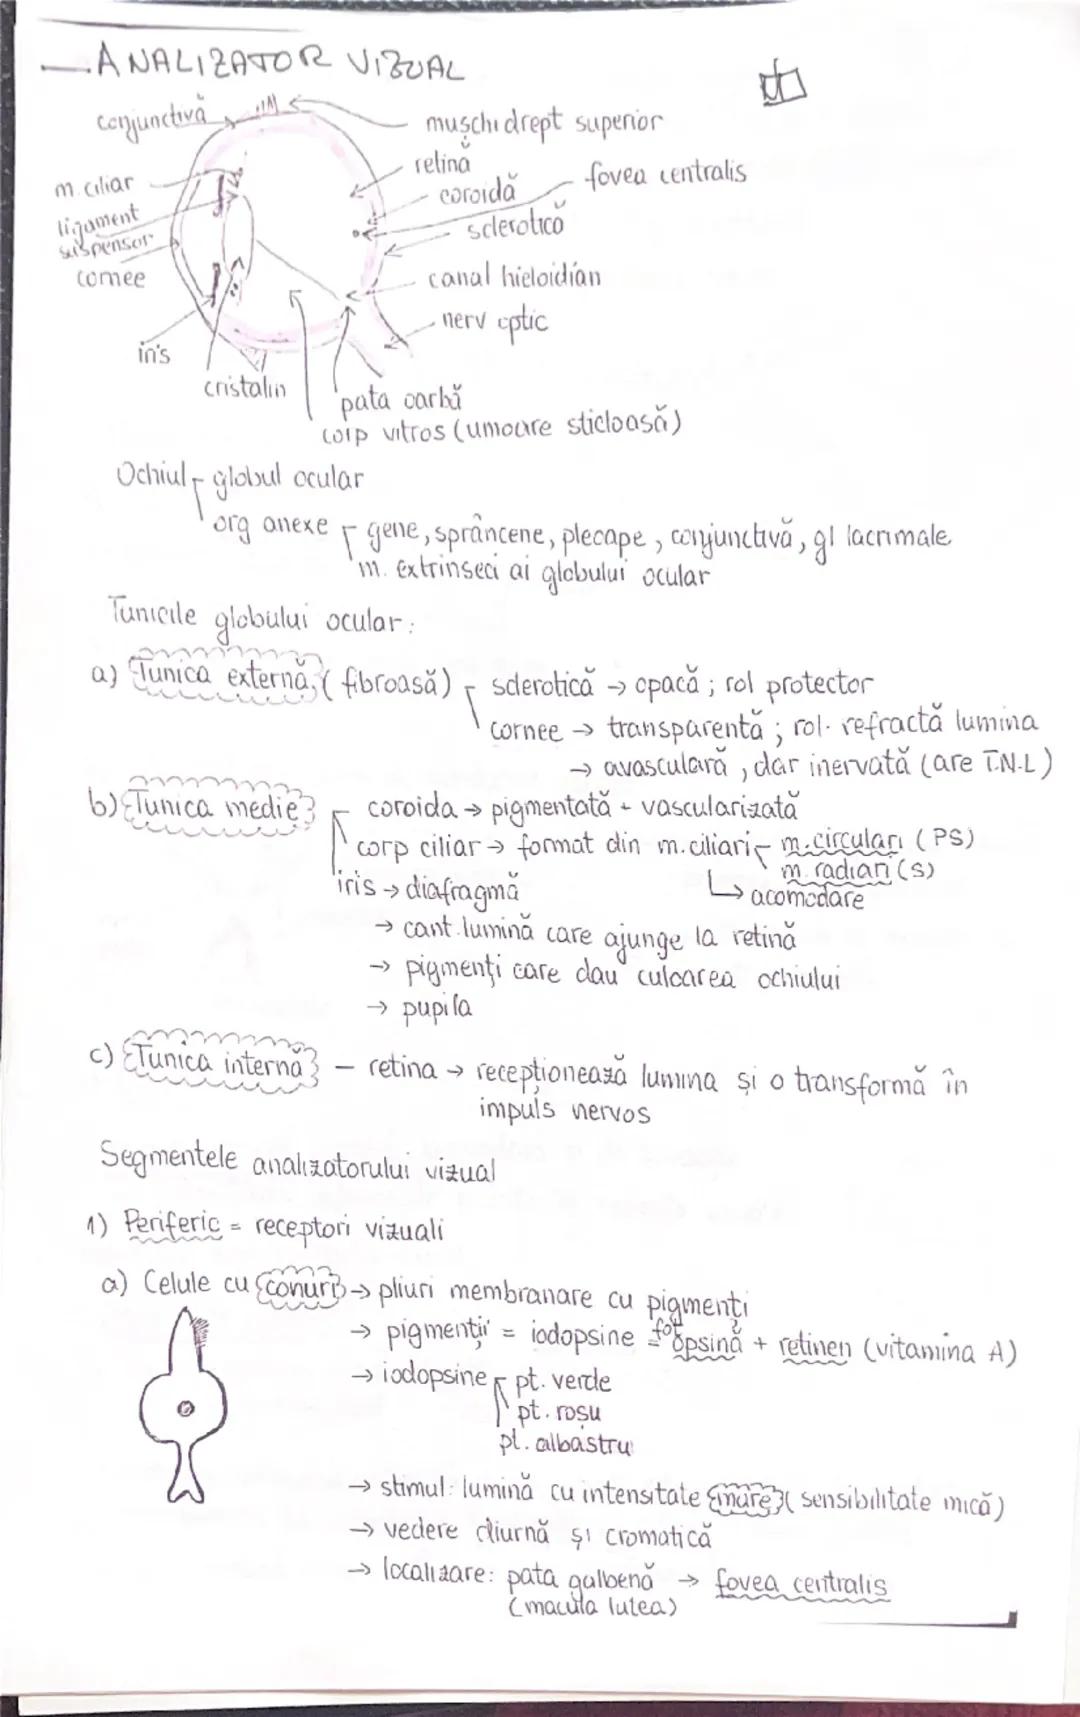 ANALIZATOR VIZUAL
conjunctivă
mușchi drept superior
retină
fovea centralis
m. ciliar
coroidă
ligament
suspensor
sclerotică
cornee
canal hieloidian
nerv optic
iris
cristalin
pata oarbă
corp vitros (umoare sticloasă)
Ochiul globul ocular
org anexe gene, sprâncene, plecape, conjunctivă, gl lacrimale
m. extrinseci ai globului ocular
Tunicile globului ocular:
a) Tunica externă (fibroasă) sclerotică → opacă; rol protector
cornee → transparentă; rol. refractă lumina
→ avasculară, dar inervată (are T.N.L)
b) Tunica medie coroida → pigmentată + vascularizată
corp ciliar → format din m. ciliari m. circulari (PS)
m. radiari (S)
iris → diafragmă
↳ acomodare
→ cant. lumină care ajunge la retină
→ pigmenți care dau culoarea ochiului
→ pupila
c) Tunica internă – retina → recepționează lumina și o transformă în
impuls nervos
Segmentele analizatorului vizual
1) Periferic = receptori vizuali
a) Celule cu conuri → pliuri membranare cu pigmenți
→ pigmenții = iodopsine = fotopsină + retinen (vitamina A)
→ iodopsine pt. verde
pt. roșu
pt. albastru
→ stimul: lumină cu intensitate mare (sensibilitate mică)
→ vedere diurnă și cromatică
→ localizare: pata galbenă → fovea centralis
(macula lutea)